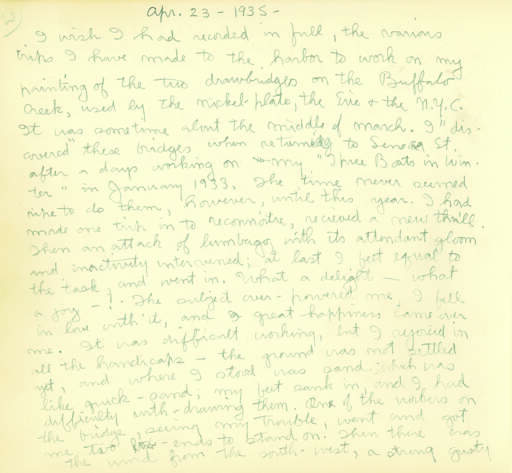 Apr. 23 - 1935 -
I wish I had recorded in full, the various
trips I have made to the harbor to work on my
painting of the two drawbridges on the Buffalo
Creek, used by the nickel-plate, the Erie & the N.Y.C.
It was sometime about the middle of march. I "dis-
covered" these bridges when returning to Seneca St.
after a days working on my "Three Boats in Win-
ter" in January 1933. The time never seemed
ripe to do them, however, until this year. I had
made one trip in to reconnoitre, recieved a new thrill.
Then an attack of lumbago, with its attendant gloom
and inactivity intervened; at last I felt equal to
the task, and went in. What a delight — what
a joy — ! The subject over-powered me, I fell
in love with it, and a great happiness came over
me. It was difficult working, but I rejoiced in
all the handicaps — the ground was not settled
yet, and where I stood was sand, which was
like quick-sand; my feet sank in, and I had
difficulty with-drawing them. One of the workers on
the bridge, seeing my trouble, went and got
me two ends to stand on. Then there was
the wind from the south-west, a strong gusty